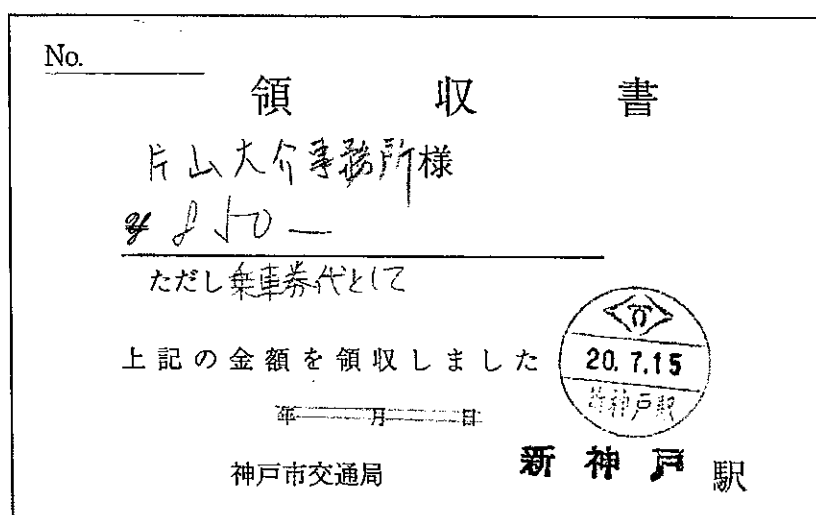 No.
領収書
片山大介事務所様
¥850ー
ただし乗車券代として
上記の金額を領収しました
20.7.15
新神戸駅
年月日
神戸市交通局
新神戸駅